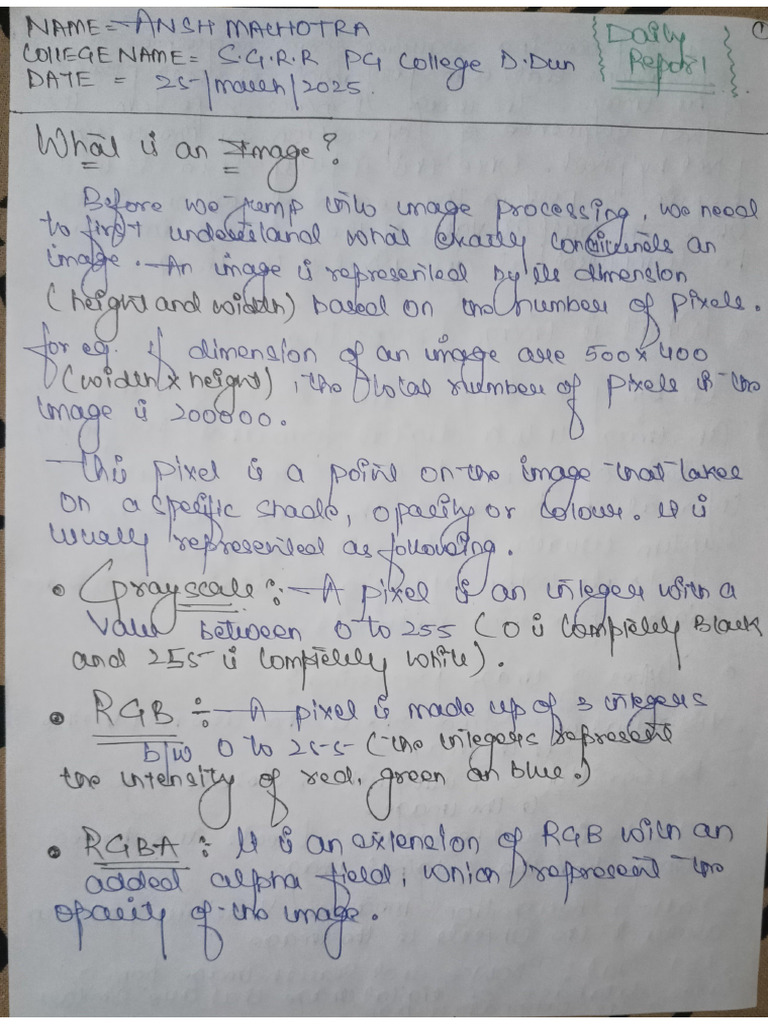 NAME = ANSH MALHOTRA
COllEGE NAME = S.G.R.R PG College D.Dun
DATE = 25/march/2025.
Daily
Report
1
What is an Image?
Before we jump into image processing, we need
to first understand what exactly constitutes an
image. An image is represented by its dimension
(height and width) based on the number of pixels.
for eg. if dimension of an image are 500 x 400
(width x height), the total number of pixels is the
image is 200000.
This pixel is a point on the image that takes
on a specific shade, opacity or colour. It is
usually represented as following.
• Grayscale :- A pixel is an integer with a
value between 0 to 255 (0 is completely Black
and 255 is completely white).
• RGB ÷ A pixel is made up of 3 integers
b/w 0 to 255 (the integers represent
the intensity of red, green an blue.)
• RGBA : It is an extension of RGB with an
added alpha field, which represent the
opacity of the image.